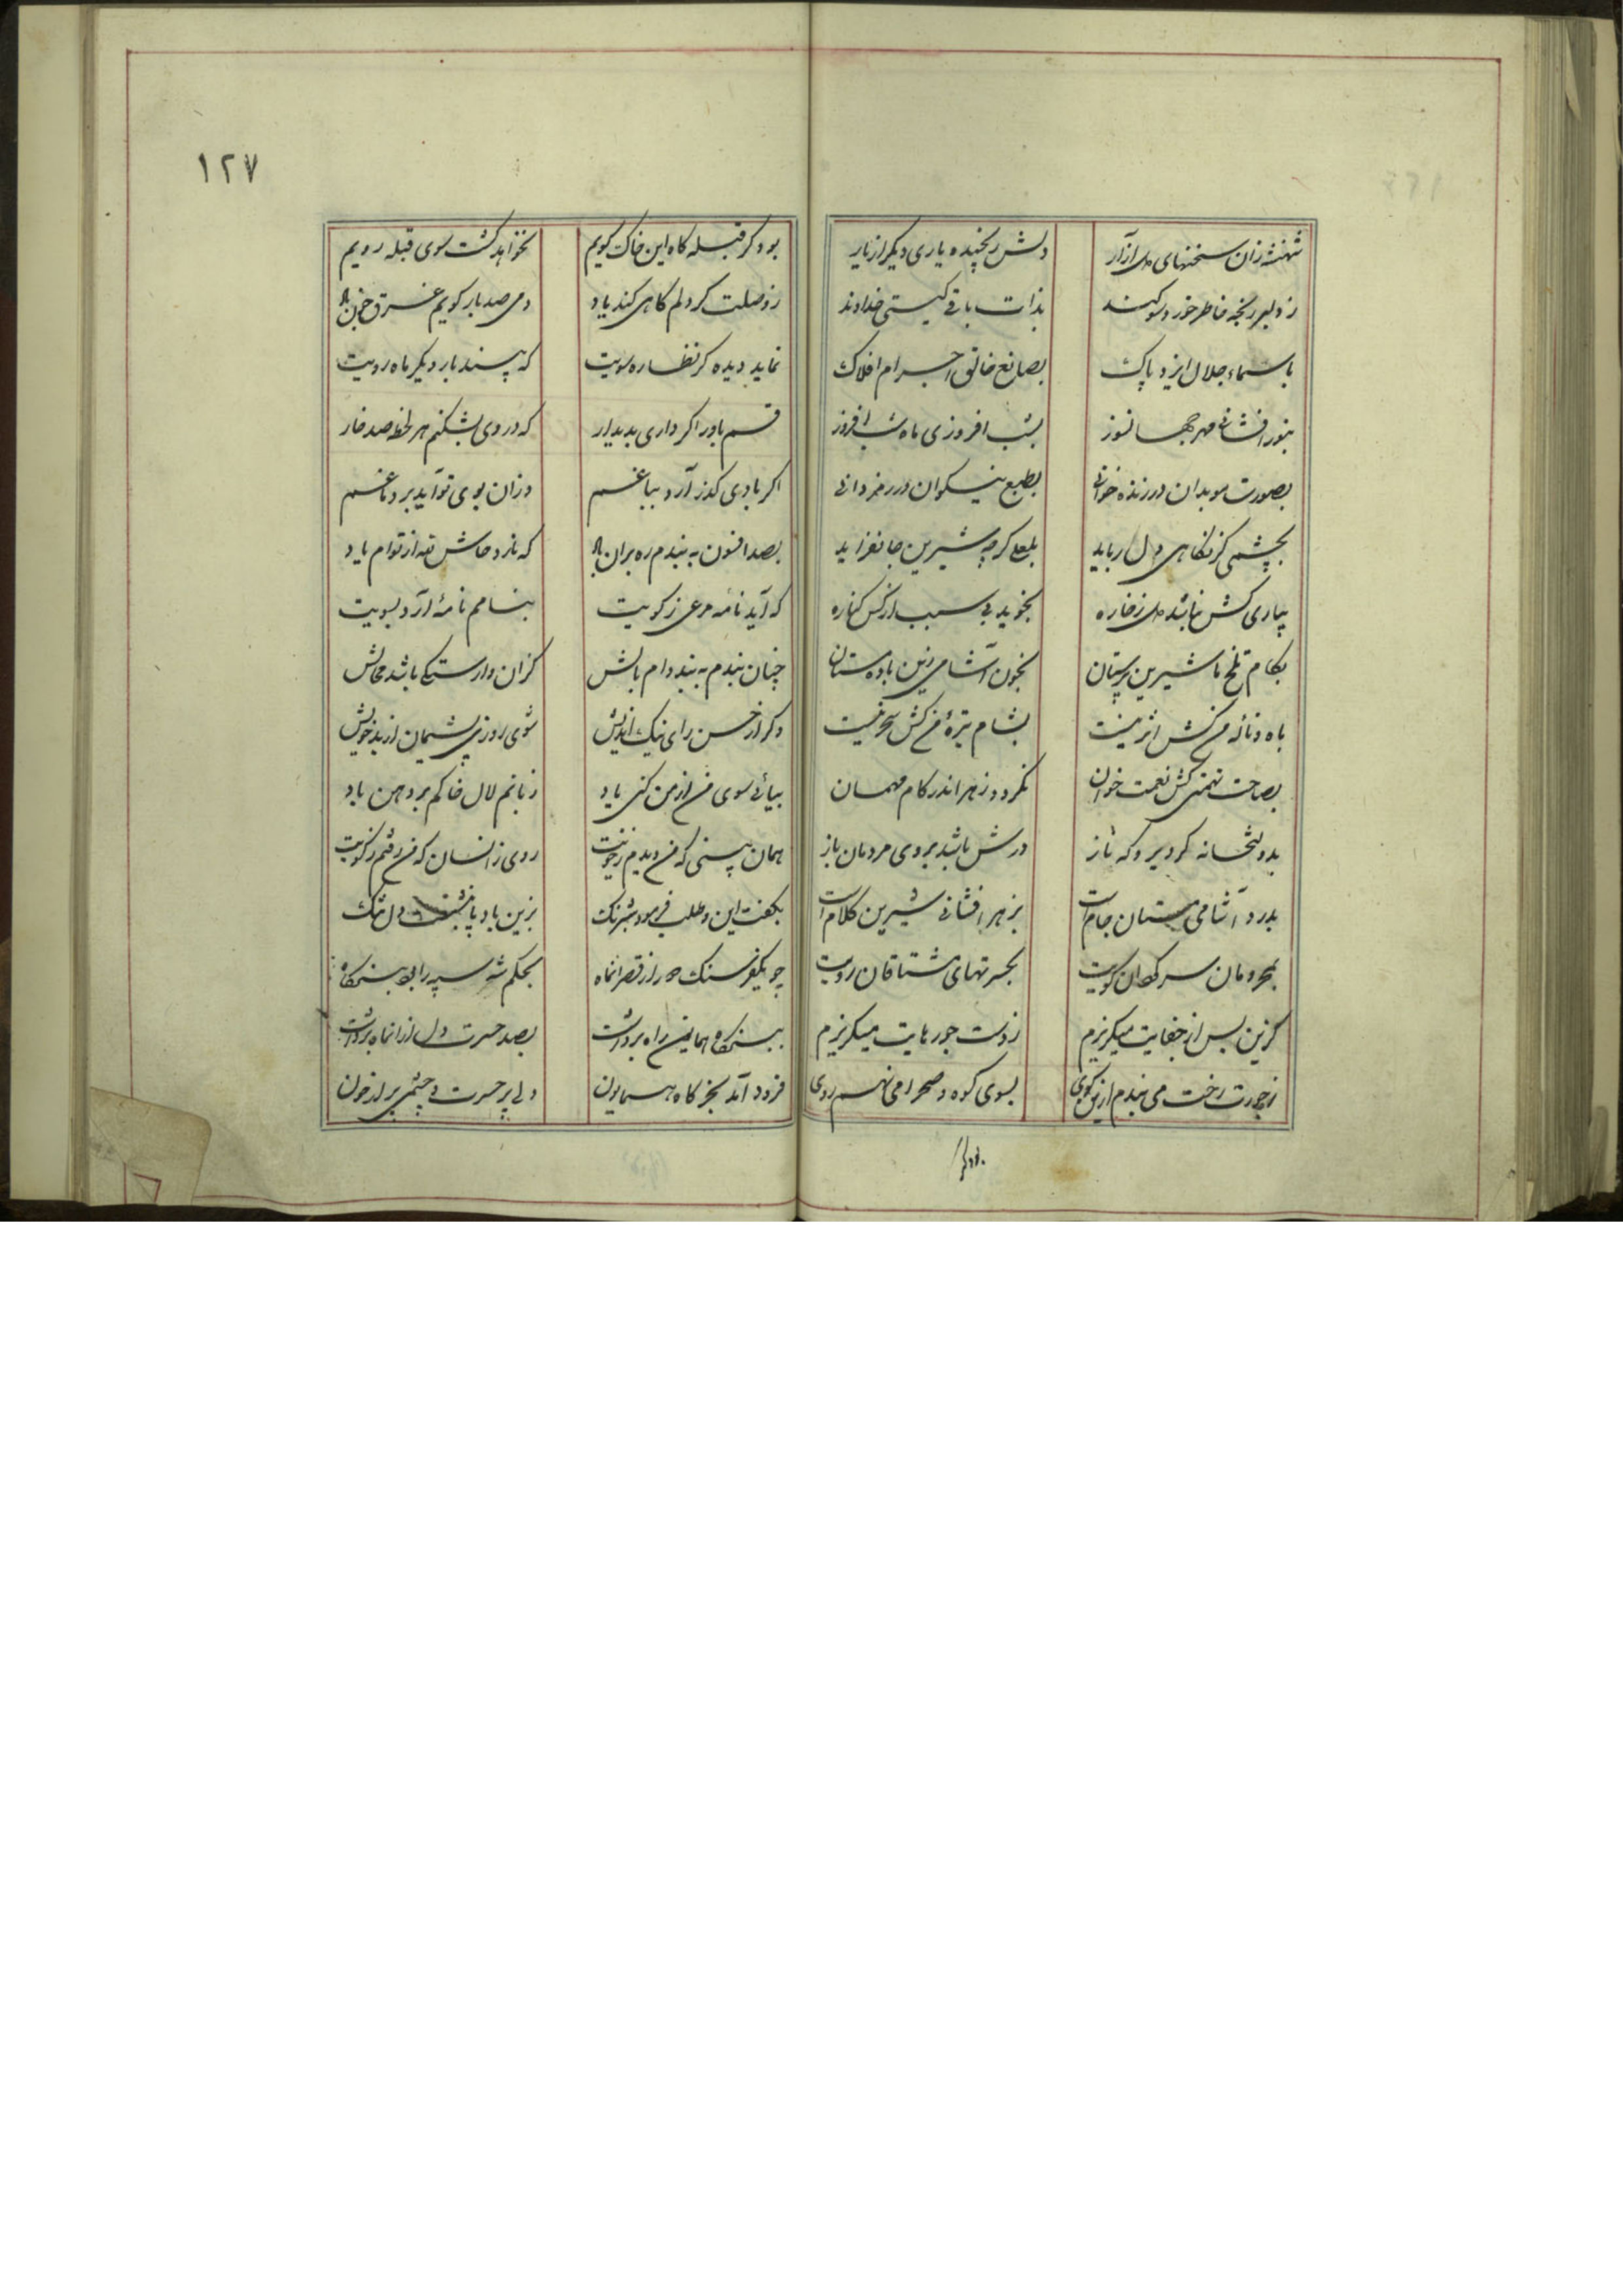 شهنشه زان سخنهای دل آزار دلش رنجیده یاری دیگر از یار
ز دلبر رنجه خاطر خورد سوکند بذات باقی کیتی خداوند
باسماء جلال ایزد پاک بصانع خالق اجرام افلاک
بنور افشانی مهر جهانسوز بشب افروزی ماه شب افروز
بصورت موبدان در زنده خوانی بطبع نیکوان در رمزدانی
بچشمی کز نکاهی دل رباید بلعلی کرچه شیرین جانفزاید
بیاری کش نباشد دل ز خاره نجوید بی سبب از کس کناره
بکام تلخ ناشیرین پرستان بخون آشامی این باده مستان
باه و ناله من کش اثر نیست بشام تیره من کش سحر نیست
بصاحت همتی کش نعمت خوان نکردد زهر اندر کام مهمان
بدولتخانه کردیر و که ناز درش باشد بروی مردمان باز
بدرد آشامی مستان جامت بزهر افشانی شیرین کلامت
بمحرومان سرکردان کویت بحسرتهای مشتاقان رویت
کزین پس از جفایت میکریزم ز دست جورهایت میکریزم
ز جورت رخت می بندم ازین کوی بسوی کوه و صحرا می نهم روی
بود کر
١٢٧
بود کر قبله کاه این خاک کویم نخواهد کشت سوی قبله رویم
ز وصلت کر دلم کاهی کند یاد دمی صد بار کویم غرق خون باد
نماید دیده کر نظاره سویت که بیند بار دیکر ماه رویت
قسم باور اکر داری بدیدار که در وی بشکنم هر لحظه صد خار
اکر بادی کذر آرد بباغم وزان بوی تو آید بر دماغم
بصد افسون به بندم ره بران باد که نارد حاش لله از توام یاد
که آید نامه مرغی ز کویت بنامم نامه آرد بسویت
چنان بندم به بند دام بالش کزان وارستکی باشد محالش
وکر از حسن رای نیک اندیش شوی روزی پشیمان از بد خویش
بیائی سوی من از من کنی یاد زبانم لال خاکم بر دهن باد
همان بینی که من دیدم ز خویت روی زانسان که من رفتم ز کویت
بکفت این و طلب فرمود شبرنک بزین باد پا بنشست دل تنک
چو یکفرسنک دور از قصر آنماه بحکم شه سپه را بود بنکاه
ببنکاه همایون راه برداشت بصد حسرت دل از آنماه برداشت
فرود آمد بخرکاه همایون دلی پر حسرت و چشمی پر از خون